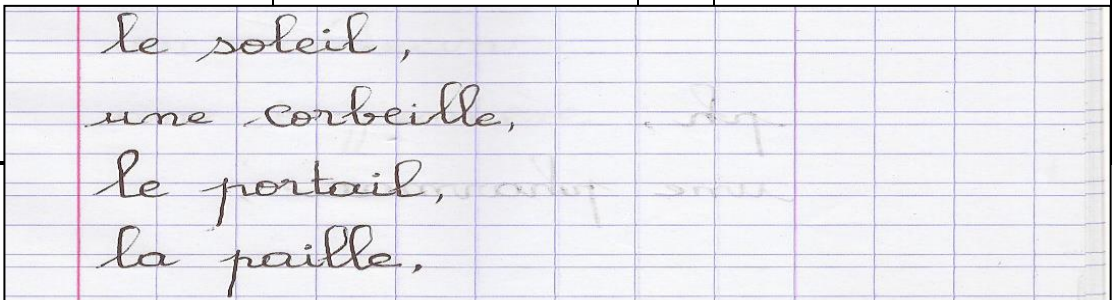 le soleil,
une corbeille,
le portail,
la paille,